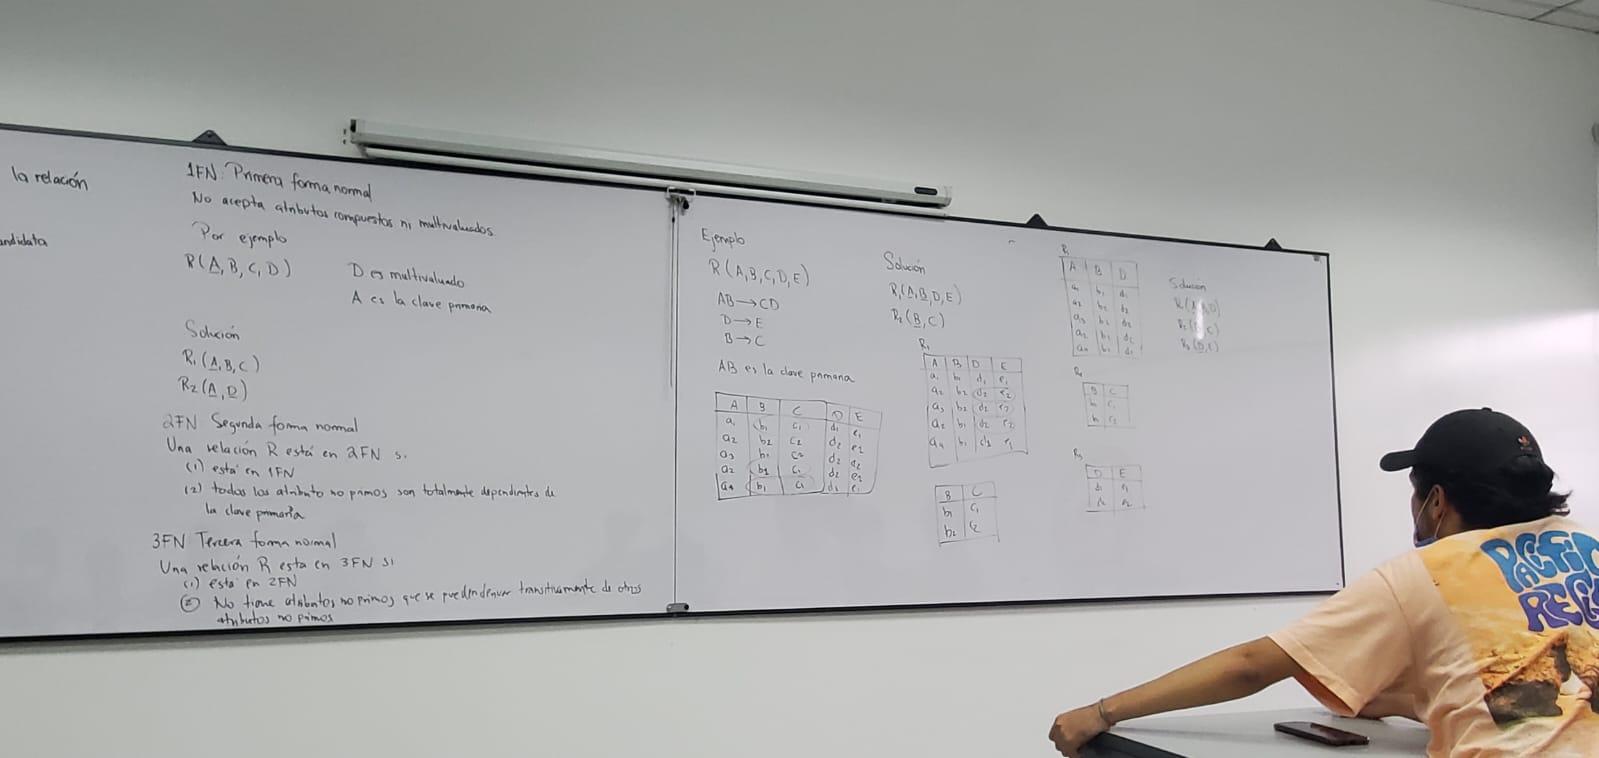 la relación
andidata
1FN: Primera forma normal
No acepta atributos compuestos ni multivaluados
Por ejemplo
R(A, B, C, D)
D es multivaluado
A es la clave primaria
Solución
R1(A, B, C)
R2(A, D)
2FN Segunda forma normal
Una relación R está en 2FN s.
(1) está en 1FN
(2) todos los atributo no primos son totalmente dependientes de
la clave primaria
3FN Tercera forma normal
Una relación R esta en 3FN si
(1) está en 2FN
(2) No tiene atributos no primos que se pueden derivar transitivamente de otros
atributos no primos
Ejemplo
R(A,B,C,D,E)
AB→CD
D→E
B→C
AB es la clave primaria
A B C D E
a1 b1 c1 d1 e1
a2 b2 c2 d2 e2
a3 c2 d2
a2 b1 c1 d2 e2
a4 b1 c1 d1 e1
Solución
R1(A,B,D,E)
R2(B,C)
R1
A B D E
a1 b1 d1 e1
a2 b2 d2 e2
a3 b2 d2 e2
a2 b1 d2 e2
a4 b1 d1 e1
B C
b1 c1
b2 c2
R1
A B D
a1 b1 d1
a2 b2 d2
a3 b2 d2
a2 b1 d2
a4 b1 d1
Solución
R1(A,B,D)
R2(B,C)
R3(D,E)
R2
B C
b1 c1
c2
R3
D E
d1 e1
d2 e2
PACIFIC